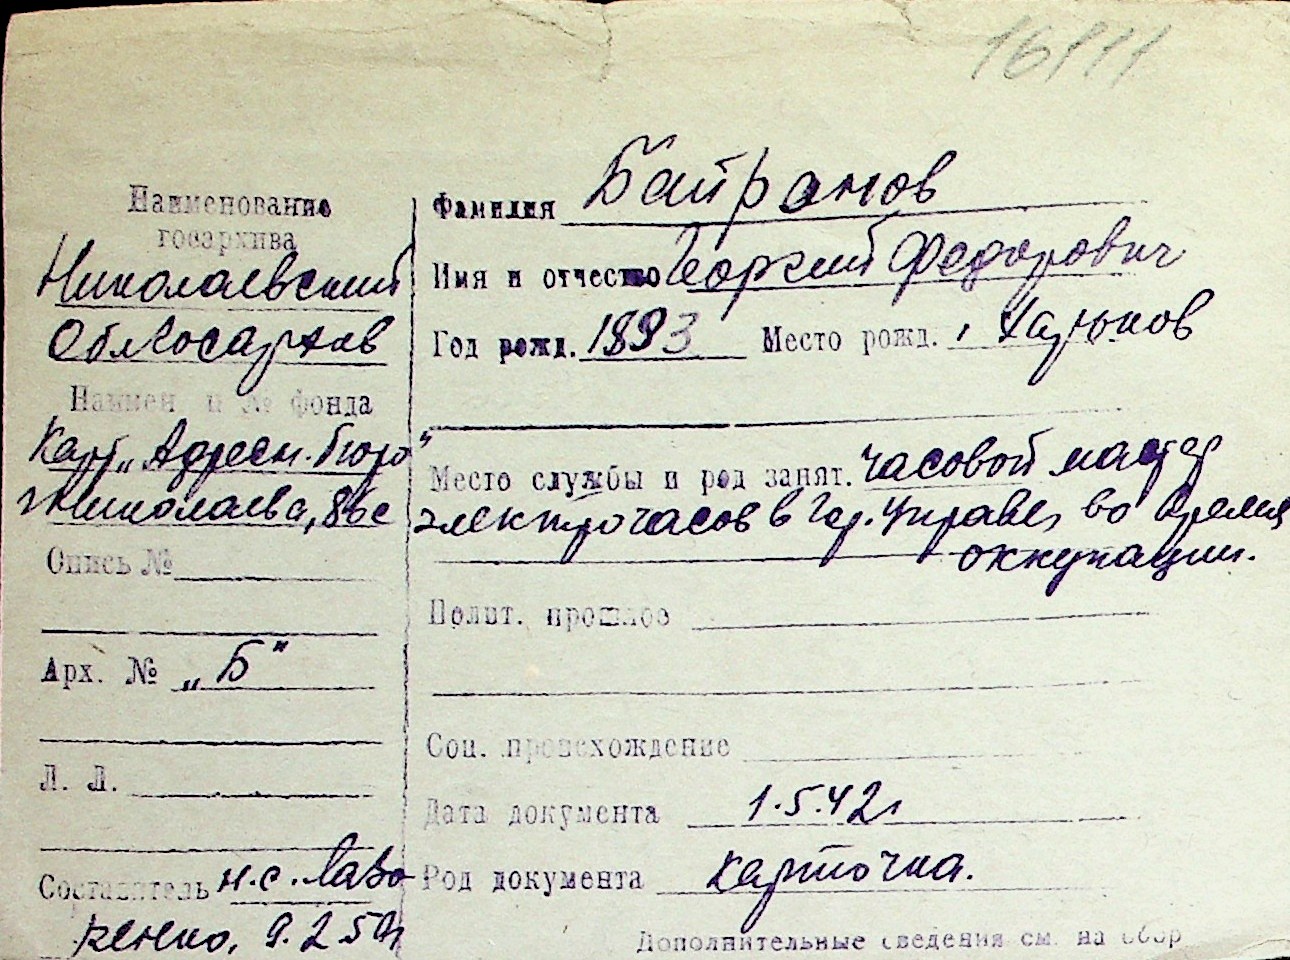 16111
Наименование
госархива
Николаевский
Облгосархив
Наимен и № фонда
Карт. „Адресн. бюро"
г. Николаева, 8бс
Опись №
Арх. № „Б"
Л. Л.
Составитель Н.С. Лазо-
ренко, 9.2.50г
Фамилия Батранов
Имя и отчество Георгий Федорович
Год рожд. 1893 Место рожд. г. Харьков
Место службы и род занят. Часовой мастер
электрочасов в Гор. Управе, во время
оккупации.
Полит. прошлое
Соц. происхождение
Дата документа 1.5.42г
Род документа карточка.
Дополнительные сведения см. на обор